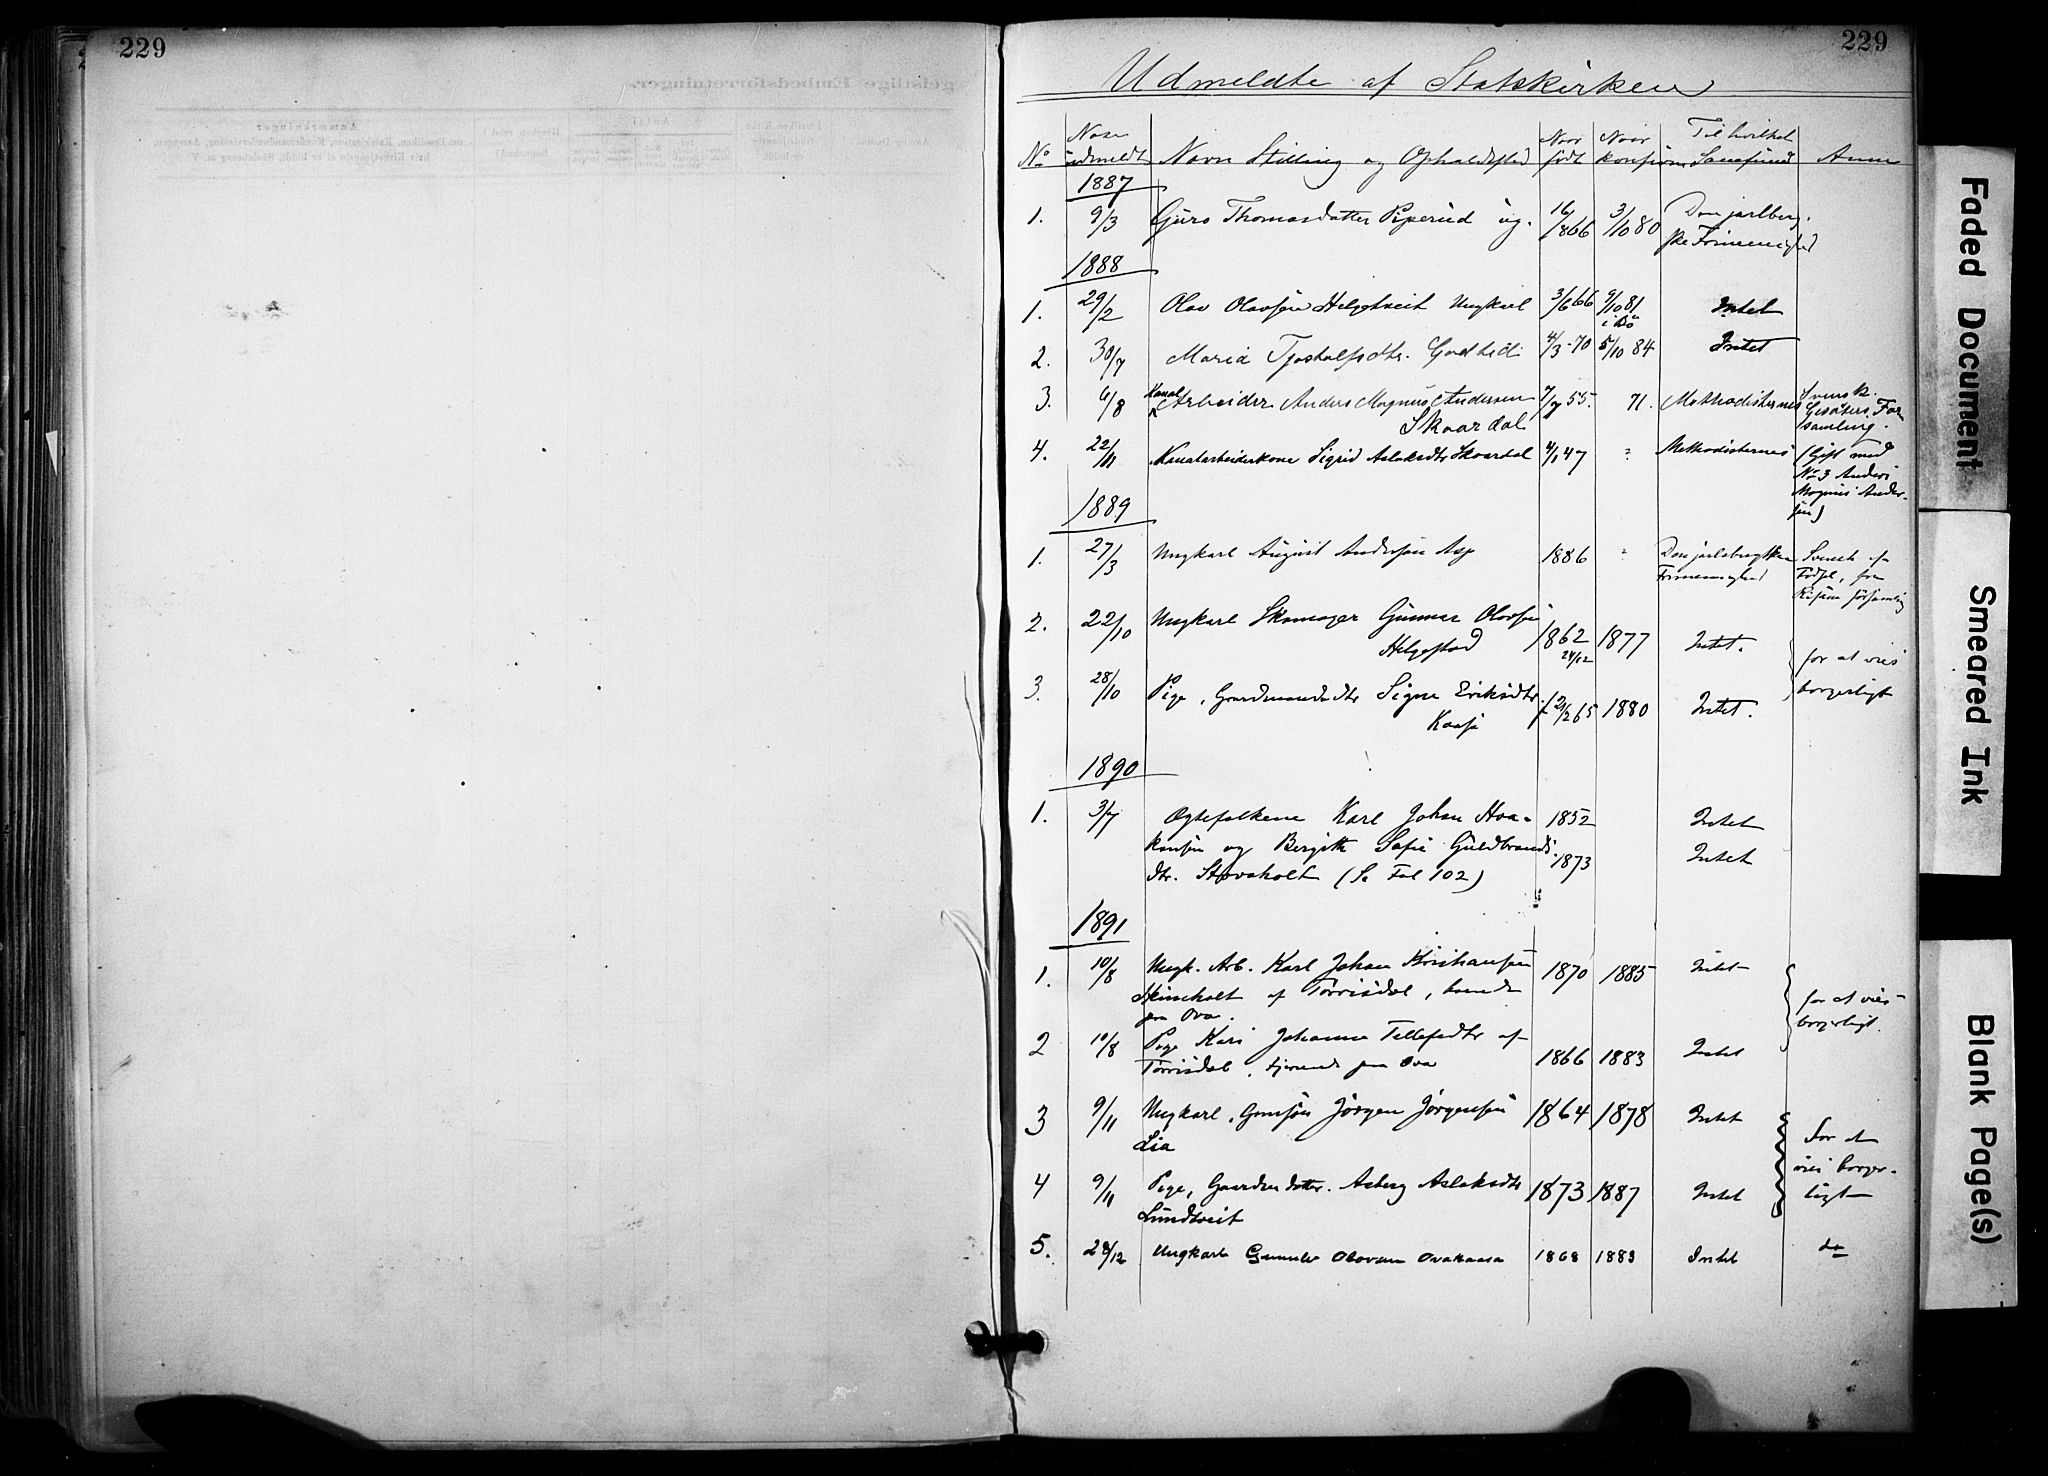 229
229
Udmeldte af Statskirken
No Naar udmeldt Navn Stilling og Opholdssted Naar født Naar konfirm Til hvilket Samfund Anm
1887
1. 9/3 Guro Thomasdatter Piperud ug. 16/ 866 3/10 80 Den jarlberg-
ske Frimenighed
1888
1. 29/2 Olav Olavsen Helgetveit Ungkarl 3/6 66 9/10 81 Intet
i Bø
2. 30/7 Maria Tjostolfsdtr. 4/3 - 70 5/10 84 Intet
3. 6/8 Kanal Arbeider Anders Magnus Andersen 7/7 55. 71. Methodisternes Svensk.
Skaardal For
samling.
4. 22/11 Kanalarbeiderkone Sigrid Aslaksdtr Skaardal 4/1 47 " Methodisternes (Gift med
No 3 Anders
Magnus Ander-
sen)
1889
1. 27/3 Ungkarl August Andersen Asp 1886 " Den jarlsbergske Svensk af
Frimenighed Fødsel, fra
2. 22/10 Ungkarl Skomager Gunnar Olavsen 1862 1877 Intet. for at vies
Helgestad 24/12
3. 28/10 Pige, Gaardmandsdtr Signe Eriksdtr. 2/2 65 1880 Intet. borgerligt
Kaasa
1890
1. 3/7 Egtefolkene Karl Johan Haa- 1852 Intet
konsen og Bergitte Sofie Guldbrands- 1873 Intet
dtr. Stavaholt (Se Fol 102)
1891
1. 10/8 Ungk. Arb. Karl Johan Kristiansen 1870 1885 Intet for at vies
af Tørrisdal, boende borgerligt.
paa Ova.
2 10/8 Pige Kari Johanne Tellefsdtr af 1866 1883 Intet
Tørrisdal, tjenende paa Ova
3 9/11 Ungkarl, Grmsøn Jørgen Jørgensen 1864 1878 Intet For at
Lia
4 9/11 Pige, Gaardmdatter. Asberg Aslaksdtr 1873 1887 Intet vies borger-
ligt
Lundtveit
5. 28/12 Ungkarl Gunnulv Olavsen Ovakaasa 1868 1883 Intet do
Faded Document
Smeared Ink
Blank Page(s)